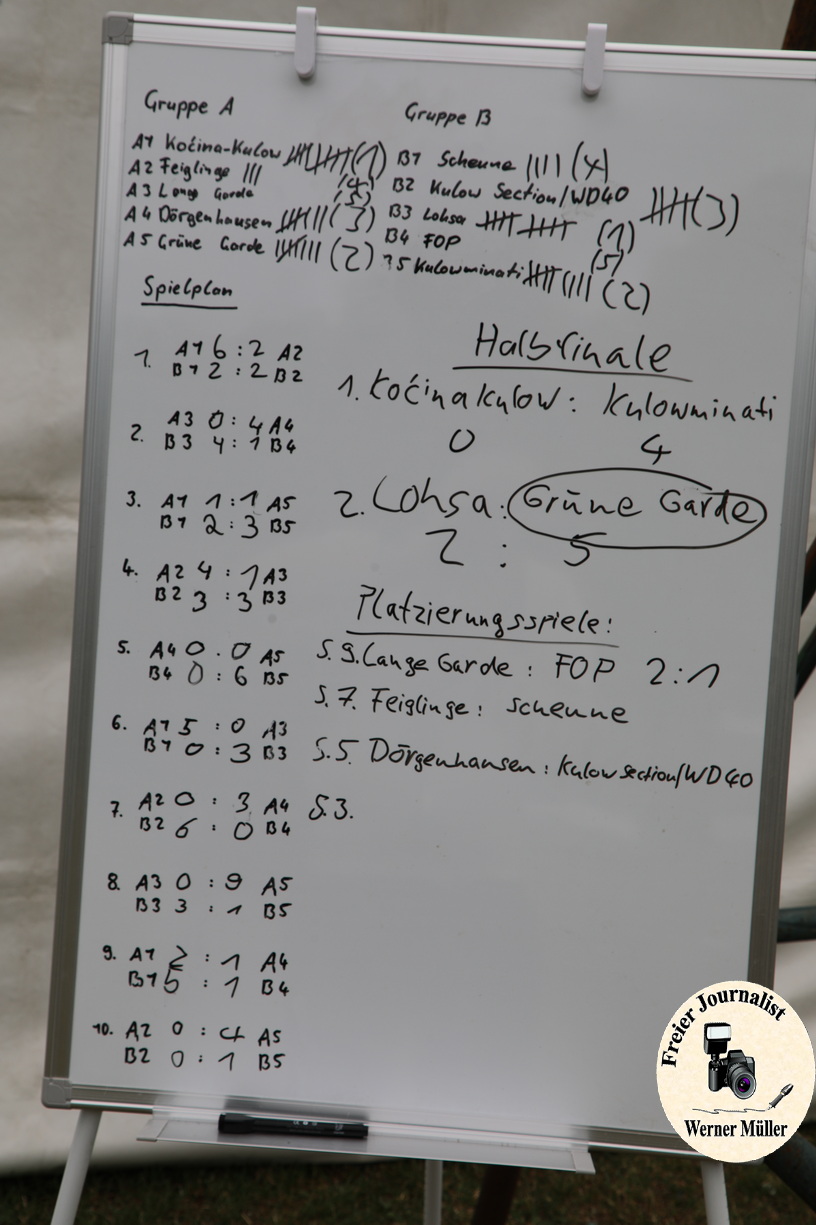 Gruppe A
A1 Koćina-Kulow (1)
A2 Feiglinge ||| (4)
A3 Lange Garde (5)
A4 Dörgenhausen (3)
A5 Grüne Garde (2)
Gruppe B
B1 Scheune |||| (4)
B2 Kulow Section/WD40 (3)
B3 Lohsa (1)
B4 FOP (5)
B5 Kulowminati (2)
Spielplan
1. A1 6 : 2 A2
B1 2 : 2 B2
2. A3 0 : 4 A4
B3 4 : 1 B4
3. A1 1 : 1 A5
B1 2 : 3 B5
4. A2 4 : 1 A3
B2 3 : 3 B3
5. A4 0 . 0 A5
B4 0 : 6 B5
6. A1 5 : 0 A3
B1 0 : 3 B3
7. A2 0 : 3 A4
B2 6 : 0 B4
8. A3 0 : 9 A5
B3 3 : 1 B5
9. A1 2 : 1 A4
B1 5 : 1 B4
10. A2 0 : 4 A5
B2 0 : 1 B5
Halbfinale
1. Koćinakulow : Kulowminati
0 4
2. Lohsa : Grüne Garde
2 : 5
Platzierungsspiele:
S. 9. Lange Garde : FOP 2:1
S. 7. Feiglinge : Scheune
S. 5. Dörgenhausen : Kulow Section/WD40
S. 3.
Freier Journalist
Werner Müller